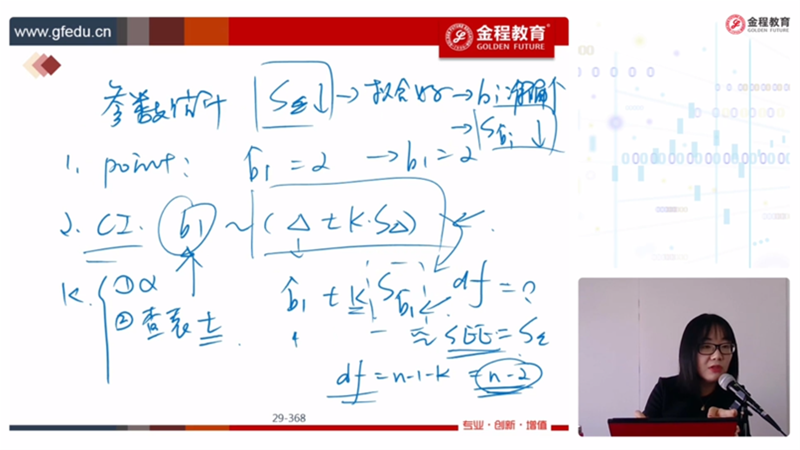 www.gfedu.cn
金程教育
GOLDEN FUTURE
金程教育
GOLDEN FUTURE
参数估计 Sε↓ → 拟合好 → b̂₁准确个
→ Sb̂₁ ↓
1. point: b̂₁ = 2 → b₁ = 2
2. CI. b₁ ~ (△ ± K·S△)
K. ①α
②查表 t
b̂₁ ± K Sb̂₁ df = ?
≈ SEE = Sε
df = n-1-k = n-2
29-368
专业·创新·增值